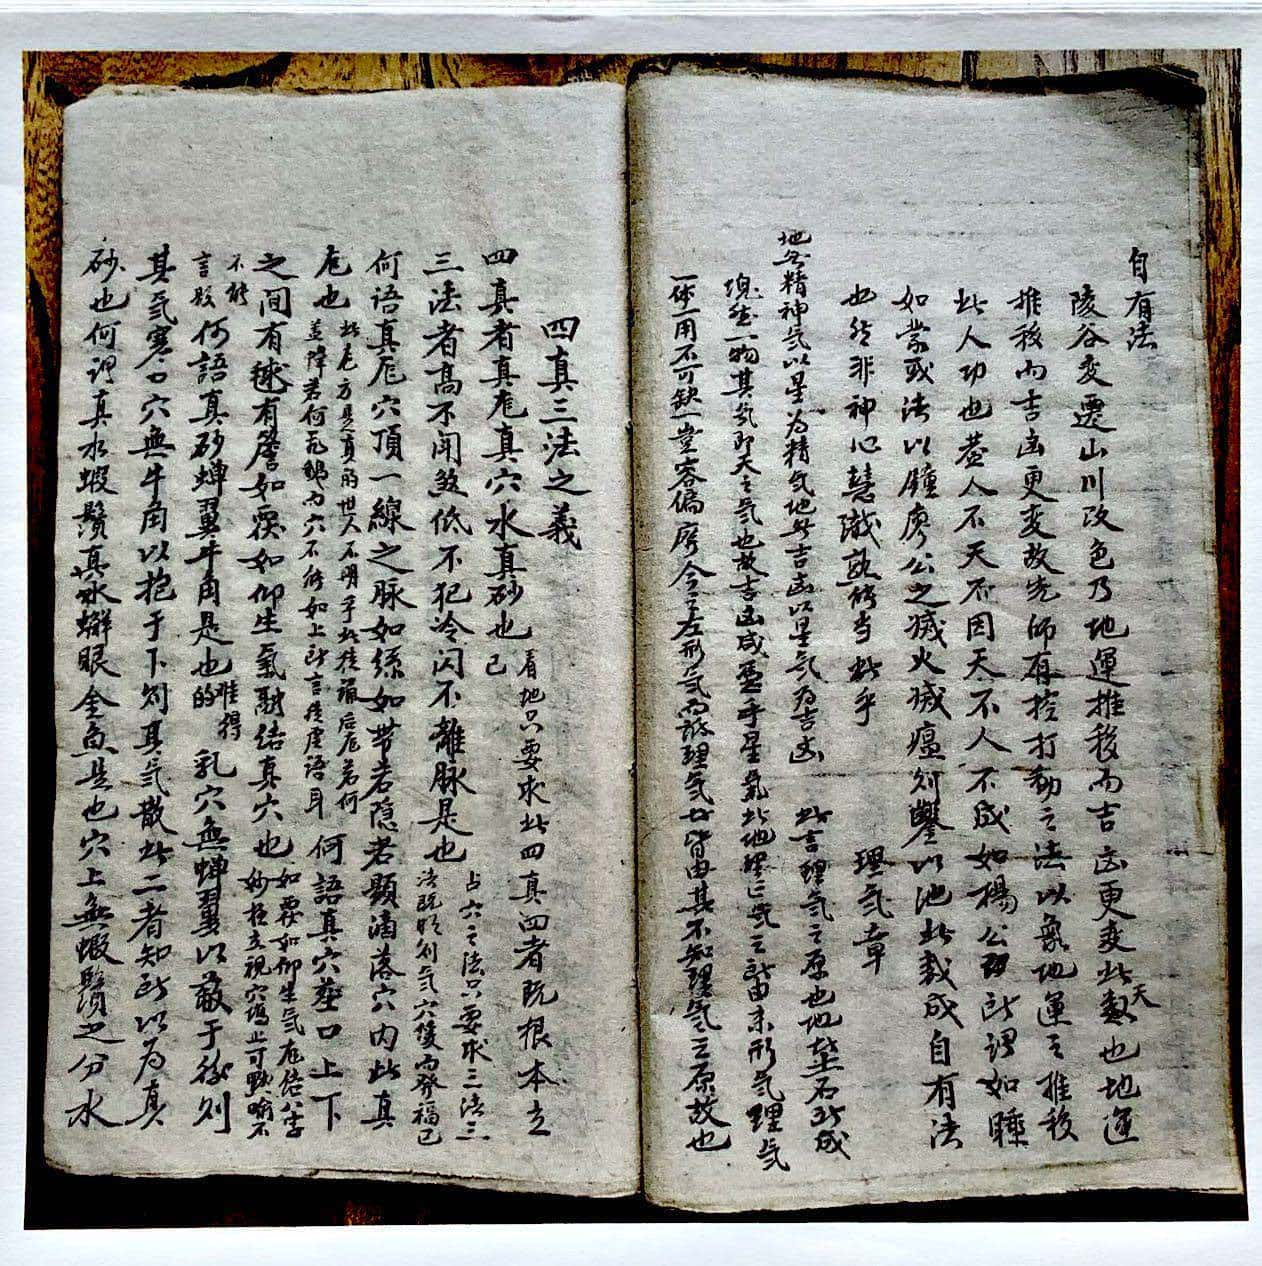 自有法
陵谷变遷山川改色乃地運推移而吉凶更变此天也地運
推移而吉凶更变故先師有控打動之法以奪地運之推移
此人功也盖人不天不因天不人不成如楊公所謂如腫
如蒙或法以鐘廖公之滅火滅瘟則鑿以池此裁成自有法
也然非神心慧識熟能当於乎
理氣章
地無精神氣以星為精氣地無吉凶以星氣為吉凶 此言理氣之原也地塟石所成
塊然一物其氣即天之氣也故吉凶咸乎星氣此地理氣之所由来形氣理氣
一体一用不可缺一豈容偏廢今之右形氣而詆理氣皆由其不知理氣之原故也
四真三法之義
四真者真龙真穴水真砂也 看地只要求此四真四者既根本立已
三法者高不闘煞低不犯冷闪不離脉是也 占穴之法只要求三法三法既明則氣穴隻而發福已
何語真龙穴頂一線之脉如絲如带若隐若顯滴落穴内此真
龙也 此龙方是真的世人不明乎此徒誦后龙若何盖障若何而穴不能如上所言徒虚語耳 何語真穴塟口上下
之間有毬有簷如窝如仰生氣融结真穴也 如窝如仰生氣
不能言般 何語真砂蝉翼牛角是也 难得的 乳穴無蝉翼以蔽于後則
其氣寒口穴無牛角以抱于下則其氣散此二者知所以为真
砂也何谓真水蝦鬚真水蠏眼金魚是也穴上無蝦鬚之分水